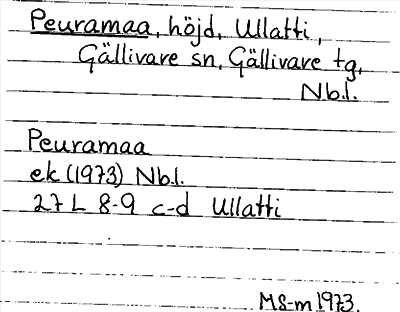 Peuramaa, höjd, Ullatti,
Gällivare sn, Gällivare tg,
Nb.l.
Peuramaa
ek (1973) Nb.l.
27 L 8-9 c-d Ullatti
MS-m 1973.